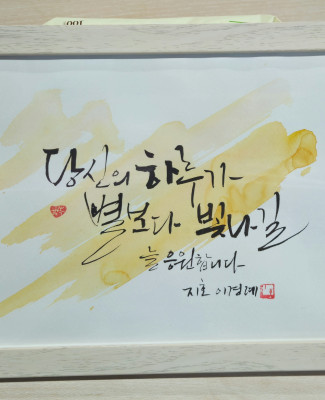 당신의 하루가
별보다 빛나길
늘 응원합니다
지호 이경예